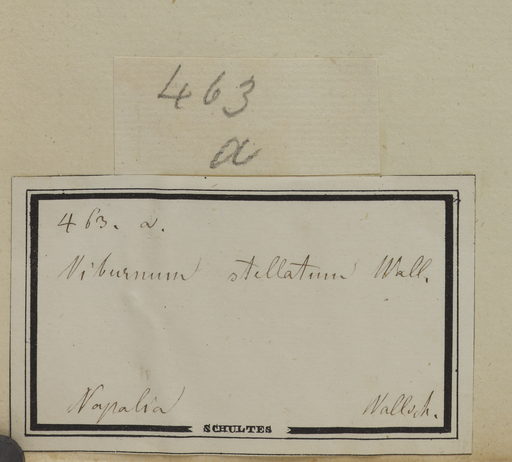 463
a
463. a.
Viburnum stellatum Wall.
Napalia Wallich.
SCHULTES